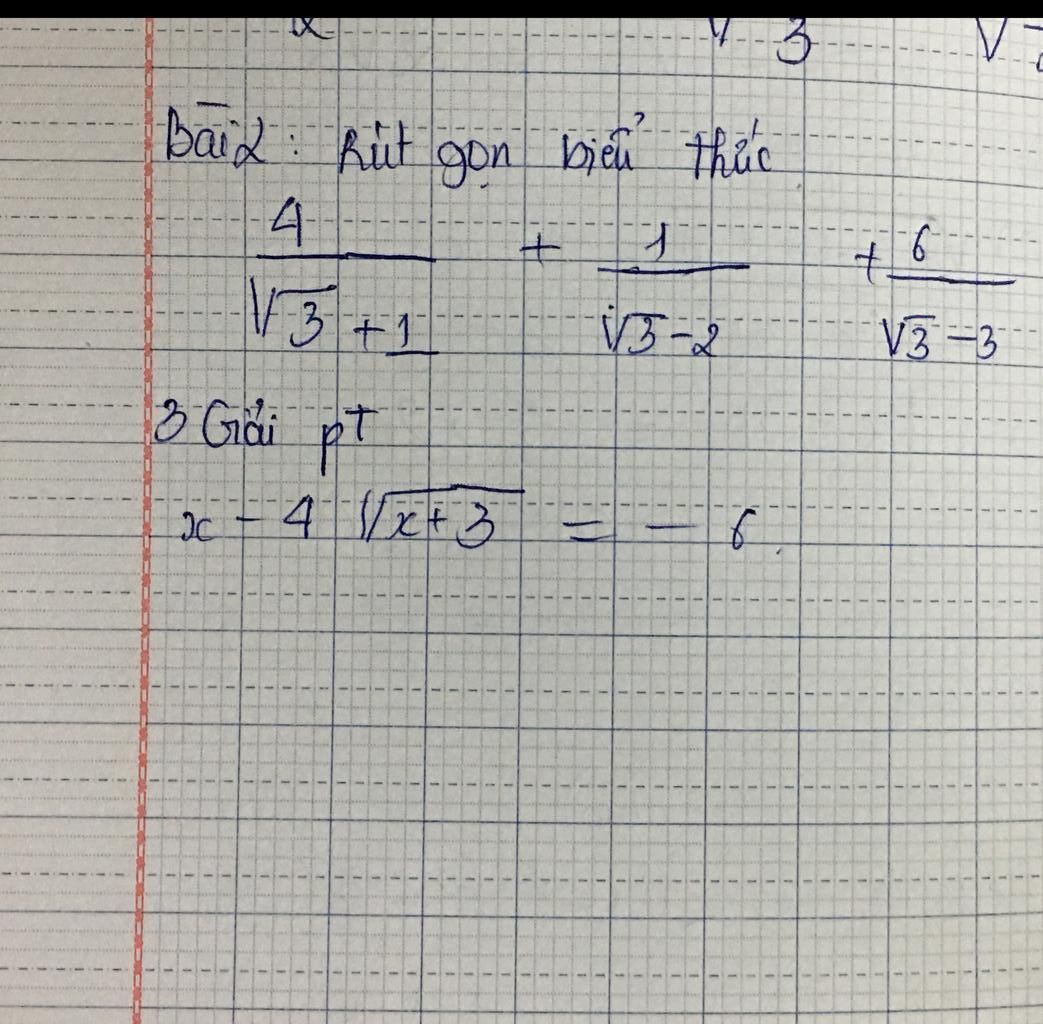 x √3 √
Bài 2: Rút gọn biểu thức
4/(√3 + 1) + 1/(√3 - 2) + 6/(√3 - 3)
3 Giải pt
x - 4 √(x + 3) = - 6.